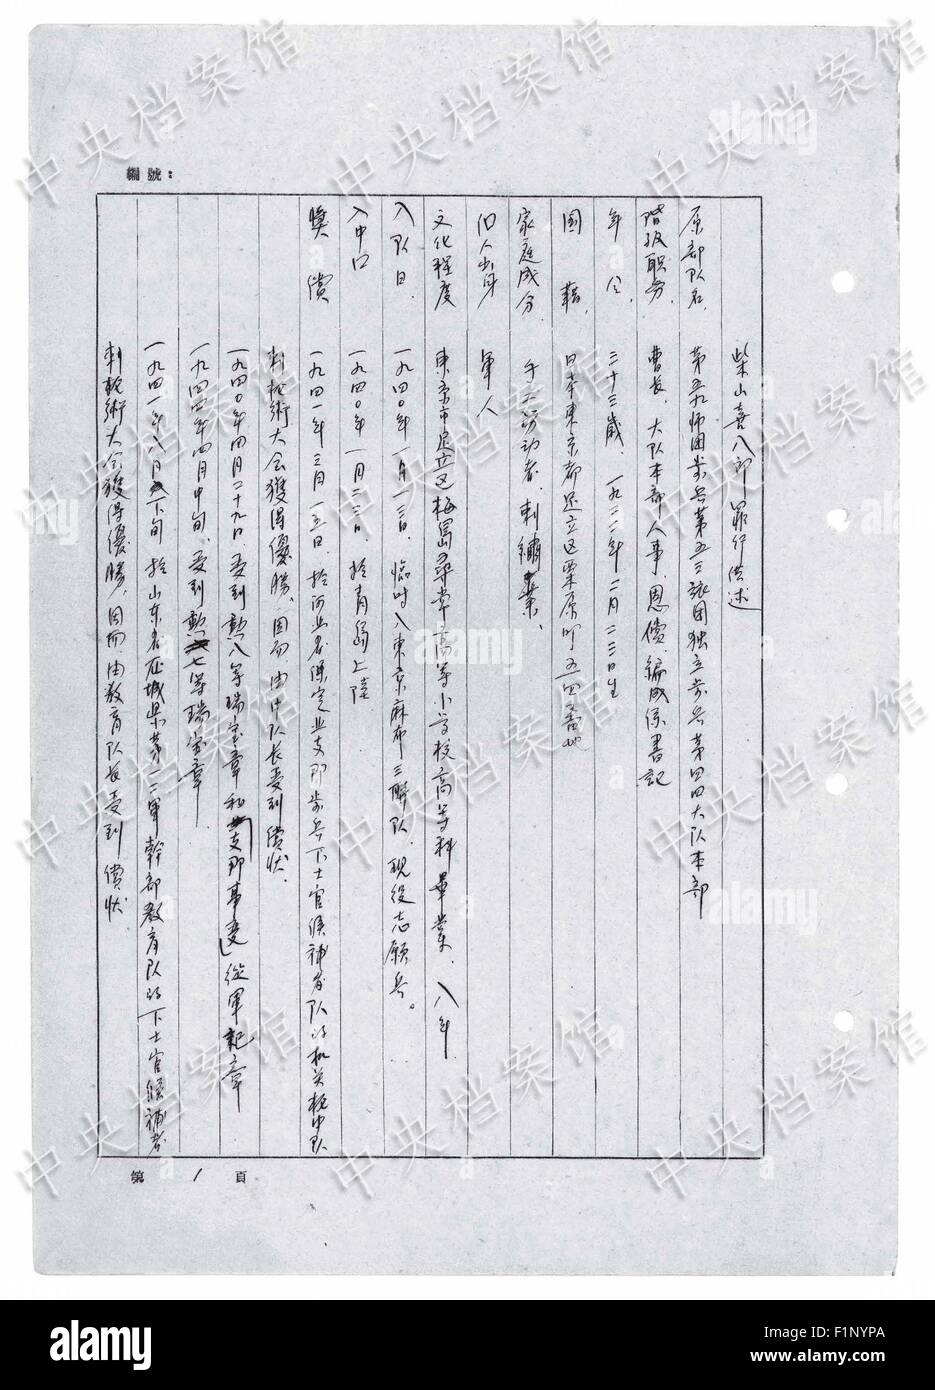 編號：
柴山喜八郎 罪行供述
原部队名、 第五九师团步兵第五三旅团独立步兵第四四大队本部
階级职务、 曹長、大队本部人事、恩償、編成係書記
年 令 三十三歲、一九二二年二月二三日生
国 籍、 日本東京都足立区栗原町五四番地
家庭成分、 手工劳动者、刺繡業、
旧人出身 軍人
文化程度 東京市足立区梅島尋常高等小学校高等科畢業、八年
入队日、 一九四〇年一月一三日、臨时入東京麻布三聯队、現役志願兵。
入中日 一九四〇年一月二三日、於青島上陸
獎 償 一九四一年三月一五日、於河北省保定北支那步兵下士官候補者队的机关枪中队
刺枪術大会獲得優勝、因而、由中队長受到償狀、
一九四〇年四月二十九日受到勲八等瑞宝章和「支那事变」從軍記章
一九四四年四月中旬、受到勲七等瑞宝章
一九四一年八月下旬 於山东省 城県第一二軍幹部教育队的下士官候補者
刺枪術大会獲得優勝、因而、由教育队長受到償狀
第 1 頁
中央档案馆
alamy
a
alamy
Image ID: F1NYPA
www.alamy.com